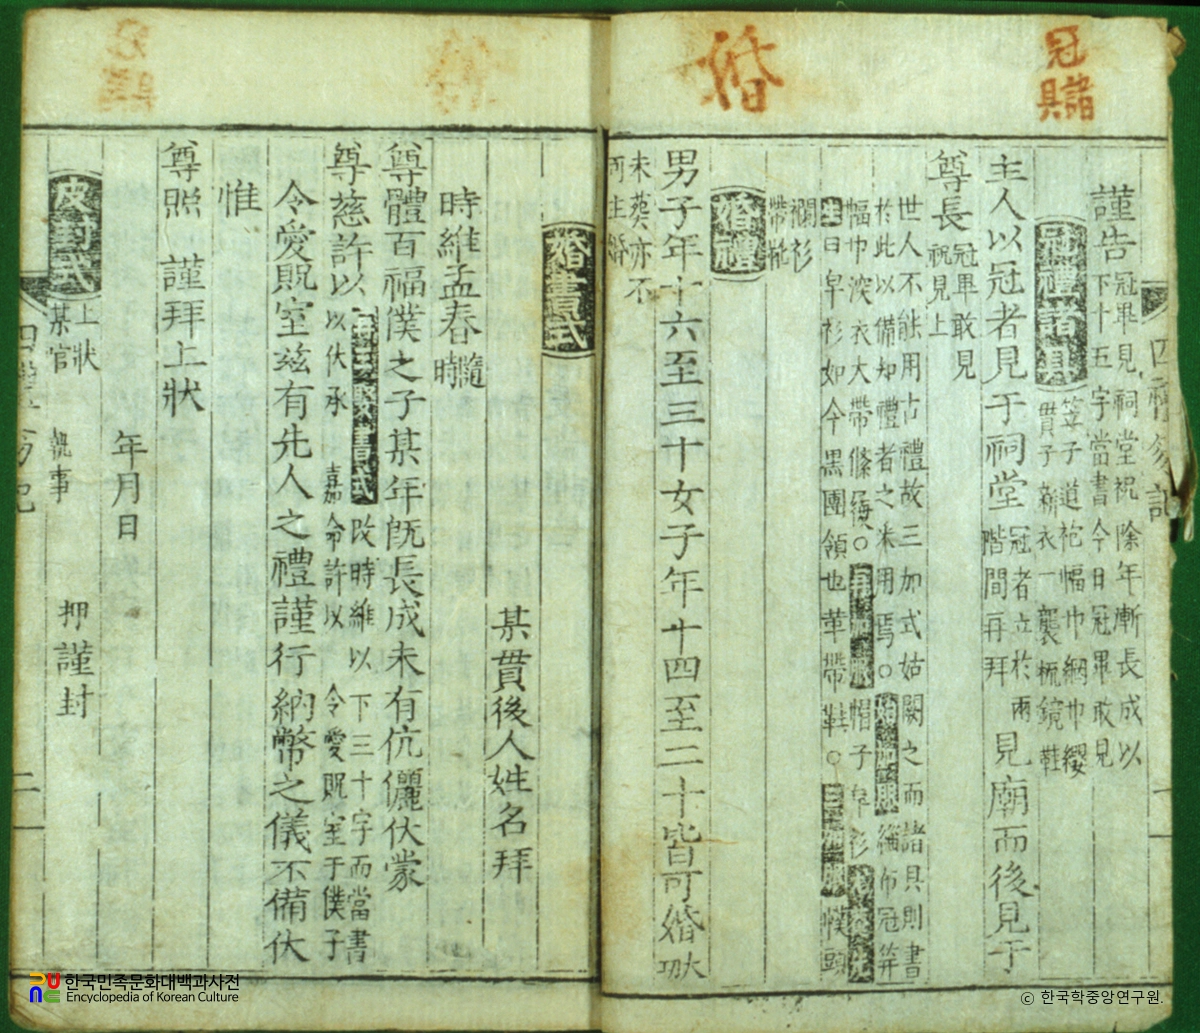 冠
諸具
婚
謹告 冠畢見祠堂祝除年漸長成以
下十五字當書今日冠畢敢見
冠禮諸具 笠子道袍幅巾網巾纓
貫子 衣一襲梳鏡鞋
主人以冠者見于祠堂 冠者立於兩
階間再拜 見廟而後見于
尊長 冠畢敢見
祝見上
世人不能用古禮故三加式姑闕之而諸具則書
於此以備知禮者之采用焉○始加服緇布冠笄
幅巾深衣大帶絛履○再加服帽子皁衫
生曰皁衫如今黑團領也革帶鞋○三加服幞頭
襴衫
帶靴
婚禮
男子年十六至三十女子年十四至二十皆可婚
未葬亦不
可主婚
婚書式
某貫後人姓名拜
時維孟春 隨時
尊體百福僕之子某年旣長成未有伉儷伏蒙
尊慈許以
改時維以下三十字而當書
以伏承 嘉命許以 令愛貺室于僕子
令愛貺室玆有先人之禮謹行納幣之儀不備伏
惟
尊照 謹拜上狀
年月日
皮封式 上狀
某官 執事 押謹封
四禮 記
二
한국민족문화대백과사전
Encyclopedia of Korean Culture
© 한국학중앙연구원.